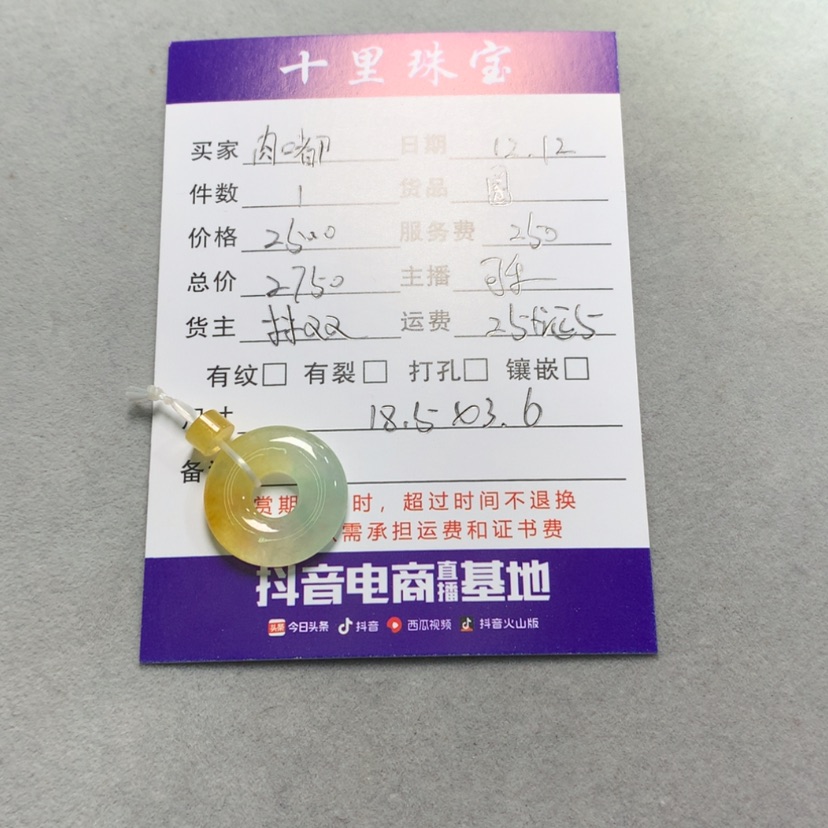 十里珠宝
买家 肉嘟 日期 12.12
件数 1 货品
价格 2500 服务费 250
总价 2750 主播
货主 林QQ 运费 25
有纹□ 有裂□ 打孔□ 镶嵌□
18.5 X3.6
备
赏期 时，超过时间不退换
需承担运费和证书费
抖音电商直播基地
头条 今日头条 抖音 西瓜视频 抖音火山版